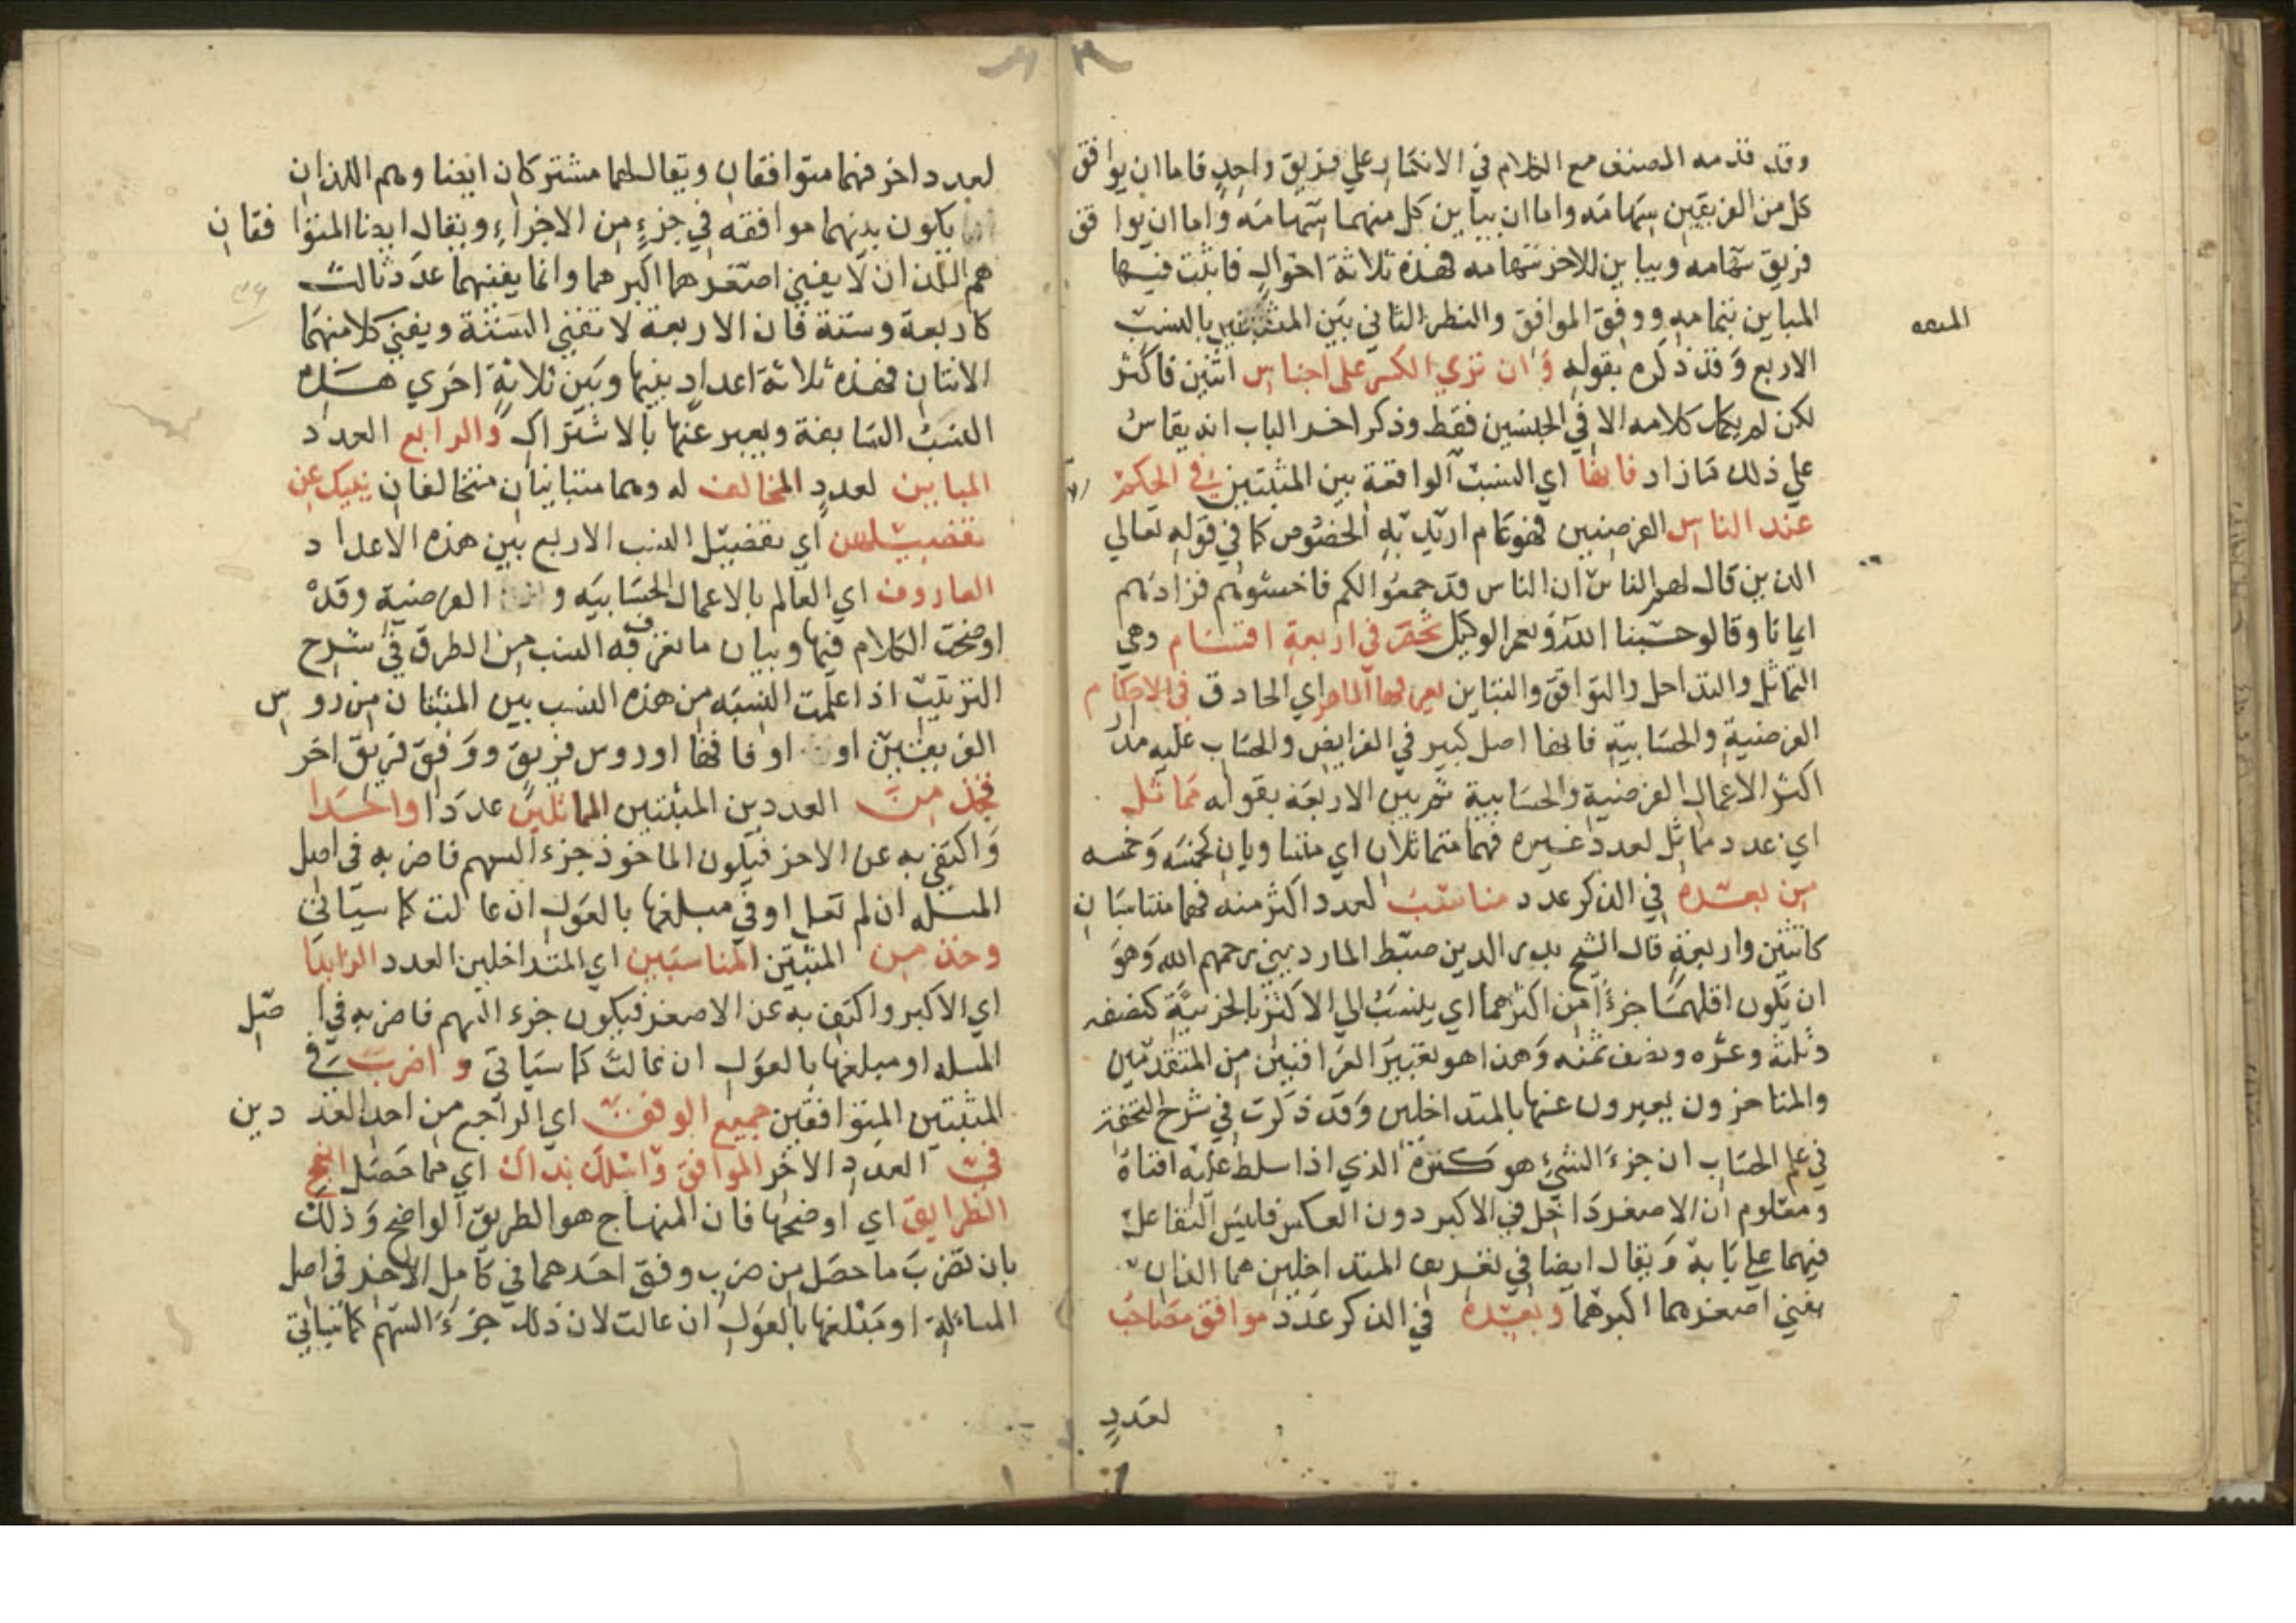 وقد قدمه المصنف مع الكلام في الانكسار علي فريق واحد فاما ان يوافق
كل من الفريقين سهامه واما ان يباين كل منهما سهامه واما ان يوافق
فريق سهامه ويباين للاخر سهامه فهذه ثلاثة احوال فاثبت فيها
المباين بتمامه ووفق الموافق والنظر الثاني بين المثبتين بالنسب
الاربع وقد ذكره بقوله وان تري الكسر على اجناس اثنين فاكثر
لكن لم يكمل كلامه الا في الجنسين فقط وذكر اخر الباب انه يقاس
علي ذلك ما زاد فانها اي النسب الواقعة بين المثبتين في الحكم
عند الناس الفرضيين فهو عام اريد به الخصوص كما في قوله تعالي
الذين قال لهم الناس ان الناس قد جمعوا لكم فاخشوهم فزادهم
ايمانا وقالو حسبنا الله ونعم الوكيل تحصر في اربعة اقسام وهي
التماثل والتداخل والتوافق والتباين يعرفها الماهر اي الحاذق في الاحكام
الفرضية والحسابية فانها اصل كبير في الفرايض والحساب عليه مدار
اكثر الاعمال الفرضية والحسابية ثم بين الاربعة بقوله مماثل
اي عدد مماثل لعدد غيره فهما متماثلان اي متساويان كخمسه وخمسه
من بعده في الذكر عدد مناسب لعدد اكثر منه فهما متناسبان
كاثنين واربعة قال الشيخ بدر الدين سبط المارديني رحمهم الله وهو
ان يكون اقلهما جزءا من اكثرهما اي ينسب الي الاكثر بالجزئية كنصفه
وثلثه وعشره ونصف ثمنه وهذا هو تعبير العراقيين من المتقدمين
والمتاخرون يعبرون عنها بالمتداخلين وقد ذكرت في شرح التحفة
في علم الحساب ان جزء الشئ هو كسره الذي اذا سلط عليه افناه
ومعلوم ان الاصغر داخل في الاكبر دون العكس فليس التفاعل
فيهما علي بابه ويقال ايضا في تعريف المتداخلين هما اللذان
يفني اصغرهما اكبرهما وبعده في الذكر عدد موافق مصاحب
لعدد
لعدد اخر فهما متوافقان ويقال لهما مشتركان ايضا وهم اللذان
يكون بينهما موافقه في جزء من الاجزاء ويقال ايضا المتوافقان
هم اللذان لا يفني اصغرهما اكبرهما وانما يفنيهما عدد ثالث
كاربعة وستة فان الاربعة لا تفني الستة ويفني كلا منهما
الاثنان فهذه ثلاثة اعداد بينها وبين ثلاثة اخري هذه
النسب السابقة ويعبر عنها بالاشتراك والرابع العدد
المباين لعدد المخالف له وهما متباينان متخالفان ينبيك عن
تفصيلهن اي تفصيل النسب الاربع بين هذه الاعداد
العارف اي العالم بالاعمال الحسابيه و الفرضية وقد
اوضحت الكلام فيها وبيان ما تعرف به النسب من الطرق في شرح
الترتيب اذا علمت النسبه من هذه النسب بين المثبتان من روس
الفريقين او اوفاقها او روس فريق ووفق فريق اخر
فخذ من العددين المثبتين المماثلين عددا واحدا
واكتفي به عن الاخر فيكون الماخوذ جزء السهم فاضربه في اصل
المسله ان لم تعل او في مبلغها بالعول ان عالت كما سياتي
وخذ من المثبتين المناسبين اي المتداخلين العدد الزايدا
اي الاكبر واكتف به عن الاصغر فيكون جزء السهم فاضربه في اصل
المسله او مبلغها بالعول ان عالت كما سياتي واضرب في
المثبتين المتوافقين جميع الوفق اي الراجع من احد العددين
في العدد الاخر الموافق واسلك بذاك اي مما حصل انهج
الطرايق اي اوضحها فان المنهاج هو الطريق الواضح وذلك
بان تضرب ما حصل من ضرب وفق احدهما في كامل الاخر في اصل
المسالة او مبلغها بالعول ان عالت لان ذلك جزء السهم كما سياتي